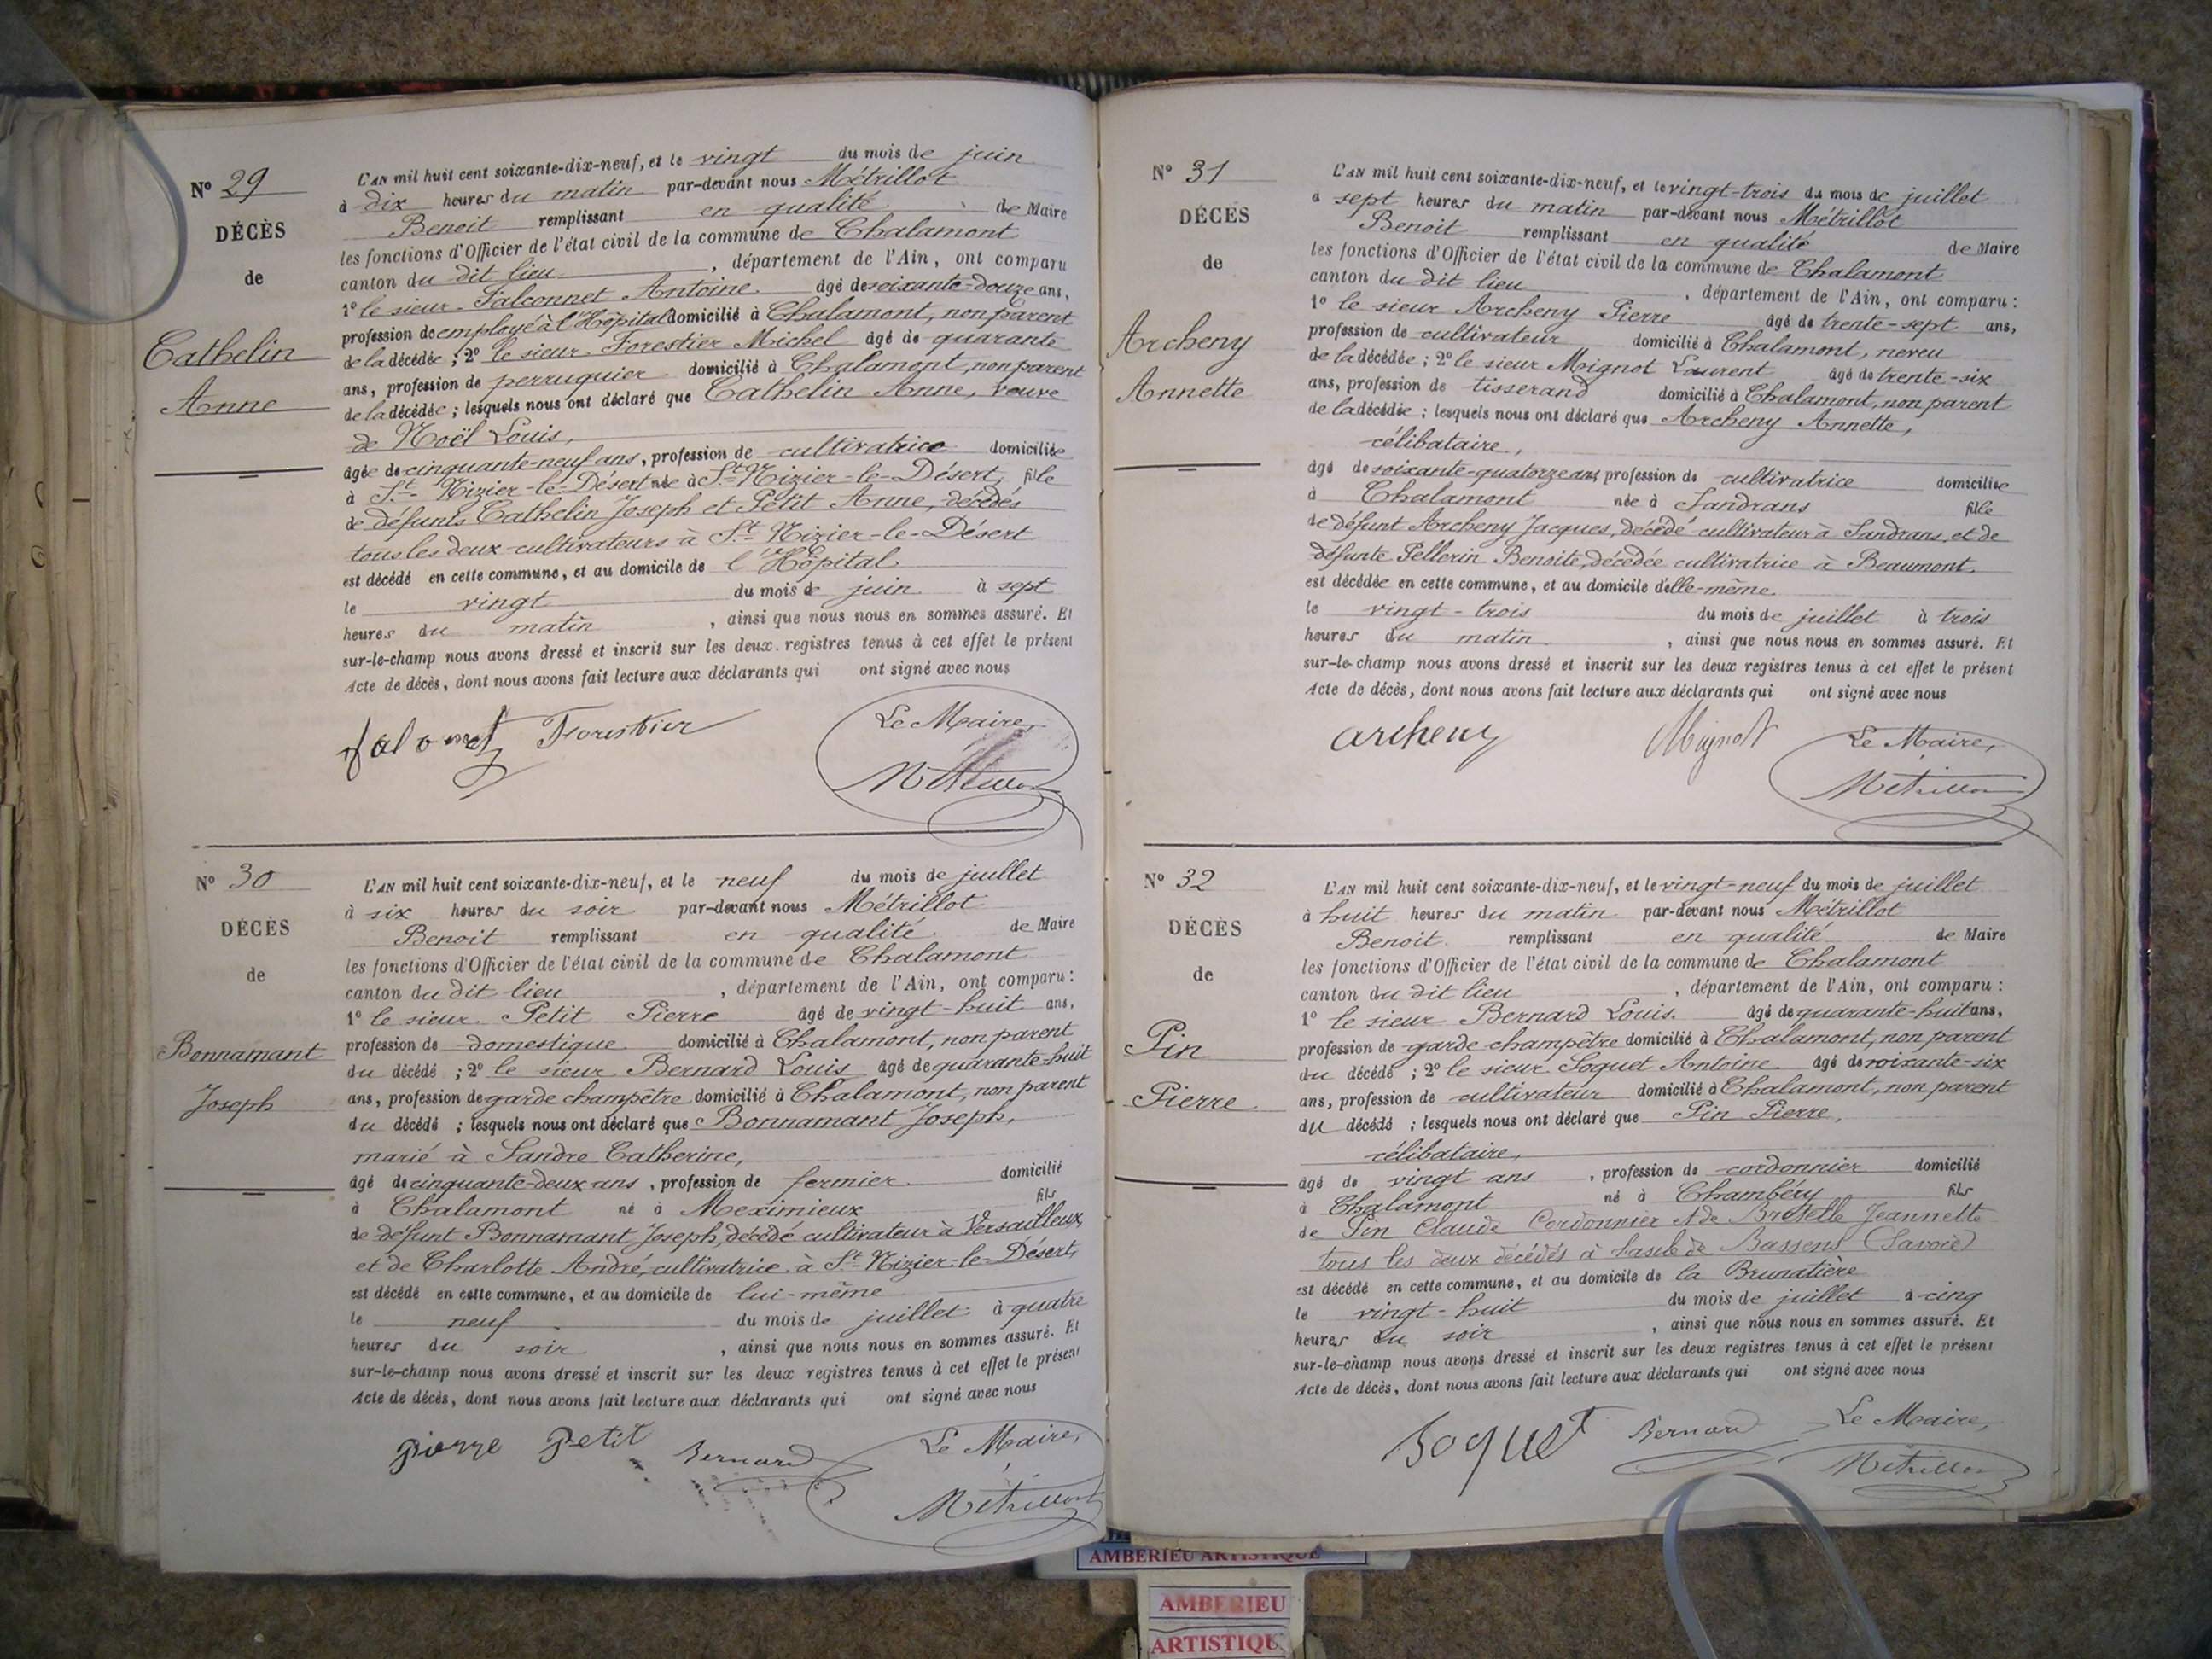 N° 29
DÉCÈS
de
Cathelin
Anne
L'AN mil huit cent soixante-dix-neuf, et le vingt du mois de juin
à dix heures du matin par-devant nous Métrillot
Benoit remplissant en qualité de Maire
les fonctions d'Officier de l'état civil de la commune de Chalamont
canton du dit lieu, département de l'Ain, ont comparu
1° le sieur Falconnet Antoine âgé de soixante-douze ans,
profession de employé à l'Hôpital domicilié à Chalamont, non parent
de la décédée ; 2° le sieur Forestier Michel âgé de quarante
ans, profession de perruquier domicilié à Chalamont, non parent
de la décédée ; lesquels nous ont déclaré que Cathelin Anne, veuve
de Noël Louis,
âgée de cinquante-neuf ans, profession de cultivatrice domiciliée
à St Nizier-le-Désert née à St Nizier-le-Désert, fille
de défunts Cathelin Joseph et Petit Anne, décédés
tous les deux cultivateurs à St Nizier-le-Désert
est décédé en cette commune, et au domicile de l'Hôpital
le vingt du mois de juin à sept
heures du matin, ainsi que nous nous en sommes assuré. Et
sur-le-champ nous avons dressé et inscrit sur les deux registres tenus à cet effet le présent
Acte de décès, dont nous avons fait lecture aux déclarants qui ont signé avec nous
Forestier Le Maire,
N° 30
DÉCÈS
de
Bonnamant
Joseph
L'AN mil huit cent soixante-dix-neuf, et le neuf du mois de juillet
à six heures du soir par-devant nous Métrillot
Benoit remplissant en qualité de Maire
les fonctions d'Officier de l'état civil de la commune de Chalamont
canton du dit lieu, département de l'Ain, ont comparu :
1° le sieur Petit Pierre âgé de vingt-huit ans,
profession de domestique domicilié à Chalamont, non parent
du décédé ; 2° le sieur Bernard Louis âgé de quarante-huit
ans, profession de garde champêtre domicilié à Chalamont, non parent
du décédé ; lesquels nous ont déclaré que Bonnamant Joseph,
marié à Sandre Catherine,
âgé de cinquante-deux ans, profession de fermier domicilié
à Chalamont né à Meximieux fils
de défunt Bonnamant Joseph, décédé cultivateur à Versailleux
et de Charlotte André, cultivatrice à St Nizier-le-Désert,
est décédé en cette commune, et au domicile de lui-même
le neuf du mois de juillet à quatre
heures du soir, ainsi que nous nous en sommes assuré. Et
sur-le-champ nous avons dressé et inscrit sur les deux registres tenus à cet effet le présent
Acte de décès, dont nous avons fait lecture aux déclarants qui ont signé avec nous
pierre petit Bernard Le Maire,
Métrillot
N° 31
DÉCÈS
de
Archeny
Annette
L'AN mil huit cent soixante-dix-neuf, et le vingt-trois du mois de juillet
à sept heures du matin par-devant nous Métrillot
Benoit remplissant en qualité de Maire
les fonctions d'Officier de l'état civil de la commune de Chalamont
canton du dit lieu, département de l'Ain, ont comparu :
1° le sieur Archeny Pierre âgé de trente-sept ans,
profession de cultivateur domicilié à Chalamont, neveu
de la décédée ; 2° le sieur Mignot Laurent âgé de trente-six
ans, profession de tisserand domicilié à Chalamont, non parent
de la décédée ; lesquels nous ont déclaré que Archeny Annette,
célibataire,
âgé de soixante-quatorze ans profession de cultivatrice domiciliée
à Chalamont née à Sandrans fille
de défunt Archeny Jacques, décédé cultivateur à Sandrans, et de
défunte Pellerin Benoite, décédée cultivatrice à Beaumont,
est décédée en cette commune, et au domicile d'elle-même.
le vingt-trois du mois de juillet à trois
heures du matin, ainsi que nous nous en sommes assuré. Et
sur-le-champ nous avons dressé et inscrit sur les deux registres tenus à cet effet le présent
Acte de décès, dont nous avons fait lecture aux déclarants qui ont signé avec nous
archeny Mignot Le Maire,
Métrillot
N° 32
DÉCÈS
de
Pin
Pierre
L'AN mil huit cent soixante-dix-neuf, et le vingt-neuf du mois de juillet
à huit heures du matin par-devant nous Métrillot
Benoit remplissant en qualité de Maire
les fonctions d'Officier de l'état civil de la commune de Chalamont
canton du dit lieu, département de l'Ain, ont comparu :
1° le sieur Bernard Louis âgé de quarante-huit ans,
profession de garde champêtre domicilié à Chalamont, non parent
du décédé ; 2° le sieur Soquet Antoine âgé de soixante-six
ans, profession de cultivateur domicilié à Chalamont, non parent
du décédé ; lesquels nous ont déclaré que Pin Pierre,
célibataire,
âgé de vingt ans, profession de cordonnier domicilié
à Chalamont né à Chambéry fils
de Pin Claude Cordonnier et de Jeannette
tous les deux décédés à l'asile de Bassens (Savoie)
est décédé en cette commune, et au domicile de la Brunatière
le vingt-huit du mois de juillet à cinq
heures du soir, ainsi que nous nous en sommes assuré. Et
sur-le-champ nous avons dressé et inscrit sur les deux registres tenus à cet effet le présent
Acte de décès, dont nous avons fait lecture aux déclarants qui ont signé avec nous
Soquet Bernard Le Maire,
Métrillot
AMBERIEU ARTISTIQUE
AMBERIEU
ARTISTIQU